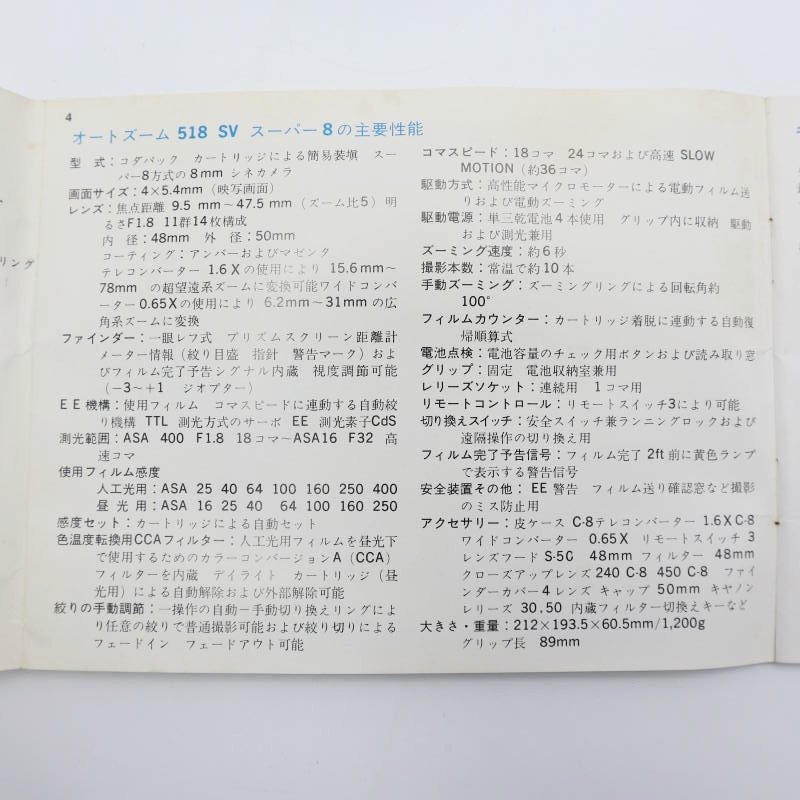 4
オートズーム 518 SV スーパー8の主要性能
型 式：コダパック カートリッジによる簡易装塡 スー
パー8方式の8mm シネカメラ
画面サイズ：4×5.4mm（映写画面）
レンズ：焦点距離 9.5 mm〜47.5 mm（ズーム比5）明
るさF1.8 11群14枚構成
内 径：48mm 外 径：50mm
コーティング：アンバーおよびマゼンタ
テレコンバーター 1.6Xの使用により 15.6mm〜
78mm の超望遠系ズームに変換可能ワイドコンバ
ーター0.65Xの使用により 6.2mm〜31mmの広
角系ズームに変換
ファインダー：一眼レフ式 プリズムスクリーン距離計
メーター情報（絞り目盛 指針 警告マーク）およ
びフィルム完了予告シグナル内蔵 視度調節可能
（−3〜+1 ジオプター）
EE機構：使用フィルム コマスピードに連動する自動絞
り機構 TTL 測光方式のサーボ EE 測光素子CdS
測光範囲：ASA 400 F1.8 18コマ〜ASA16 F32 高
速コマ
使用フィルム感度
人工光用：ASA 25 40 64 100 160 250 400
昼 光 用：ASA 16 25 40 64 100 160 250
感度セット：カートリッジによる自動セット
色温度転換用CCAフィルター：人工光用フィルムを昼光下
で使用するためのカラーコンバージョンA（CCA）
フィルターを内蔵 デイライト カートリッジ（昼
光用）による自動解除および外部解除可能
絞りの手動調節：一操作の自動−手動切り換えリングによ
り任意の絞りで普通撮影可能および絞り切りによる
フェードイン フェードアウト可能
コマスピード：18コマ 24コマおよび高速 SLOW
MOTION（約36コマ）
駆動方式：高性能マイクロモーターによる電動フィルム送
りおよび電動ズーミング
駆動電源：単三乾電池4本使用 グリップ内に収納 駆動
および測光兼用
ズーミング速度：約6秒
撮影本数：常温で約10本
手動ズーミング：ズーミングリングによる回転角約
100°
フィルムカウンター：カートリッジ着脱に連動する自動復
帰順算式
電池点検：電池容量のチェック用ボタンおよび読み取り窓
グリップ：固定 電池収納室兼用
レリーズソケット：連続用 1コマ用
リモートコントロール：リモートスイッチ3により可能
切り換えスイッチ：安全スイッチ兼ランニングロックおよび
遠隔操作の切り換え用
フィルム完了予告信号：フィルム完了 2ft前に黄色ランプ
で表示する警告信号
安全装置その他：EE警告 フィルム送り確認窓など撮影
のミス防止用
アクセサリー：皮ケース C-8テレコンバーター 1.6X C-8
ワイドコンバーター 0.65X リモートスイッチ 3
レンズフード S-50 48mm フィルター 48mm
クローズアップレンズ 240 C-8 450 C-8 ファイ
ンダーカバー4 レンズ キャップ 50mm キヤノン
レリーズ 30.50 内蔵フィルター切換えキーなど
大きさ・重量：212×193.5×60.5mm/1,200g
グリップ長 89mm
リング